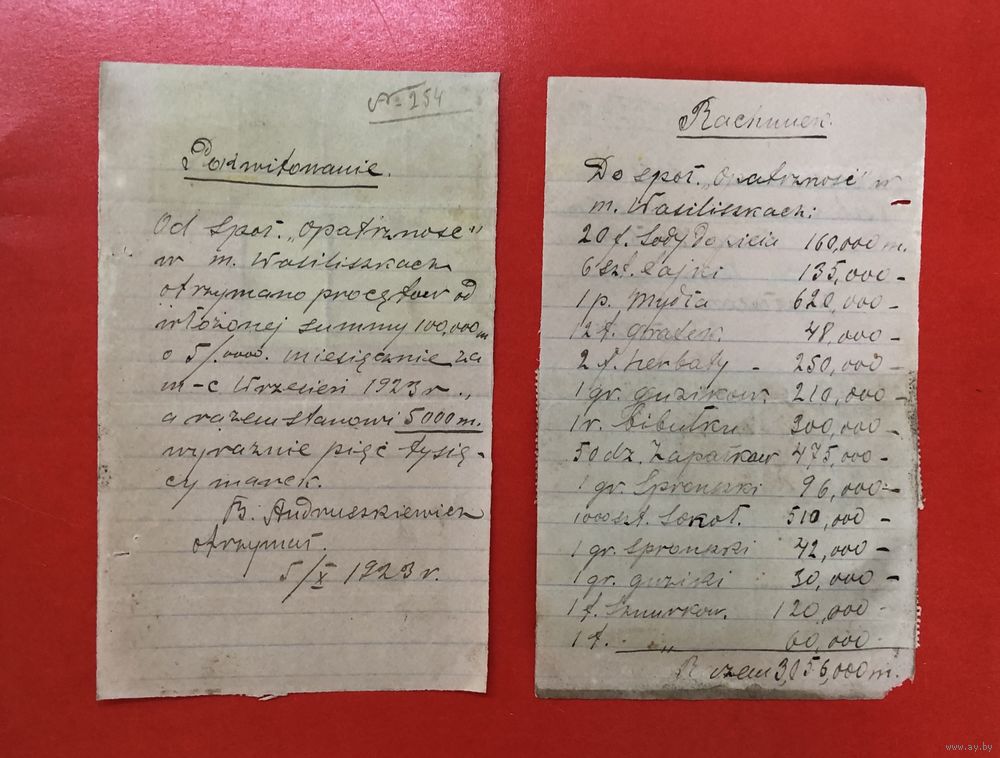 № 254
Pokwitowanie.
Od Społ. „Opatrzność"
w m. Wasiliszkach
otrzymano procętow od
włożonej summy 100,000 m
o 5/.0000. miesięcznie za
m-c Wrzesień 1923 r.,
a razem stanowi 5000 m.
wyraźnie pięć tysię-
cy marek.
B. Andruszkiewicz
otrzymał.
5/X 1923 r.
Rachunek.
Do społ. „Opatrzność" w
m. Wasiliszkach:
20 f. Sody do picia 160,000 m.
6 szt. Łajki 135,000 -
1 p. Mydła 620,000 -
12 f. 48,000 -
2 f. herbaty - 250,000 -
1 gr. guzikow. 210,000 -
1 r. bibułku 300,000 -
50 dz. Zapałkow 475,000 -
1 gr. Spronżki 96,000 -
1000 szt. Sokoł. 510,000 -
1 gr. spronżki 42,000 -
1 gr. guziki 30,000 -
1 f. Sznurkow. 120,000 -
1 f. „ 60,000
Razem 3,056,000 m.
www.ay.by